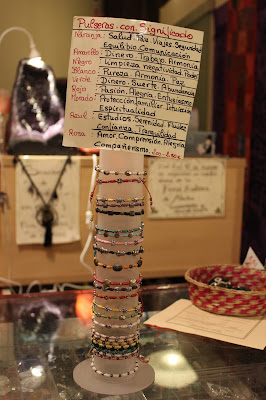 Pulseras con Significado
Naranja: Salud, Paz, Viajes, Seguridad
Equilibrio, Comunicación
Amarillo: Dinero, Trabajo, Armonía
Negro Limpieza negatividad, Poder
Blanco: Pureza, Armonía, Paz
Verde Dinero, Suerte, Abundancia
Rojo Pasión, Alegría, Entusiasmo
Morado: Protección familiar
Espiritualidad
Azul Estudios, Serenidad, Fluidez
Confianza Tranquilidad
Rosa Amor, Comprensión, Alegría
Compañerismo.